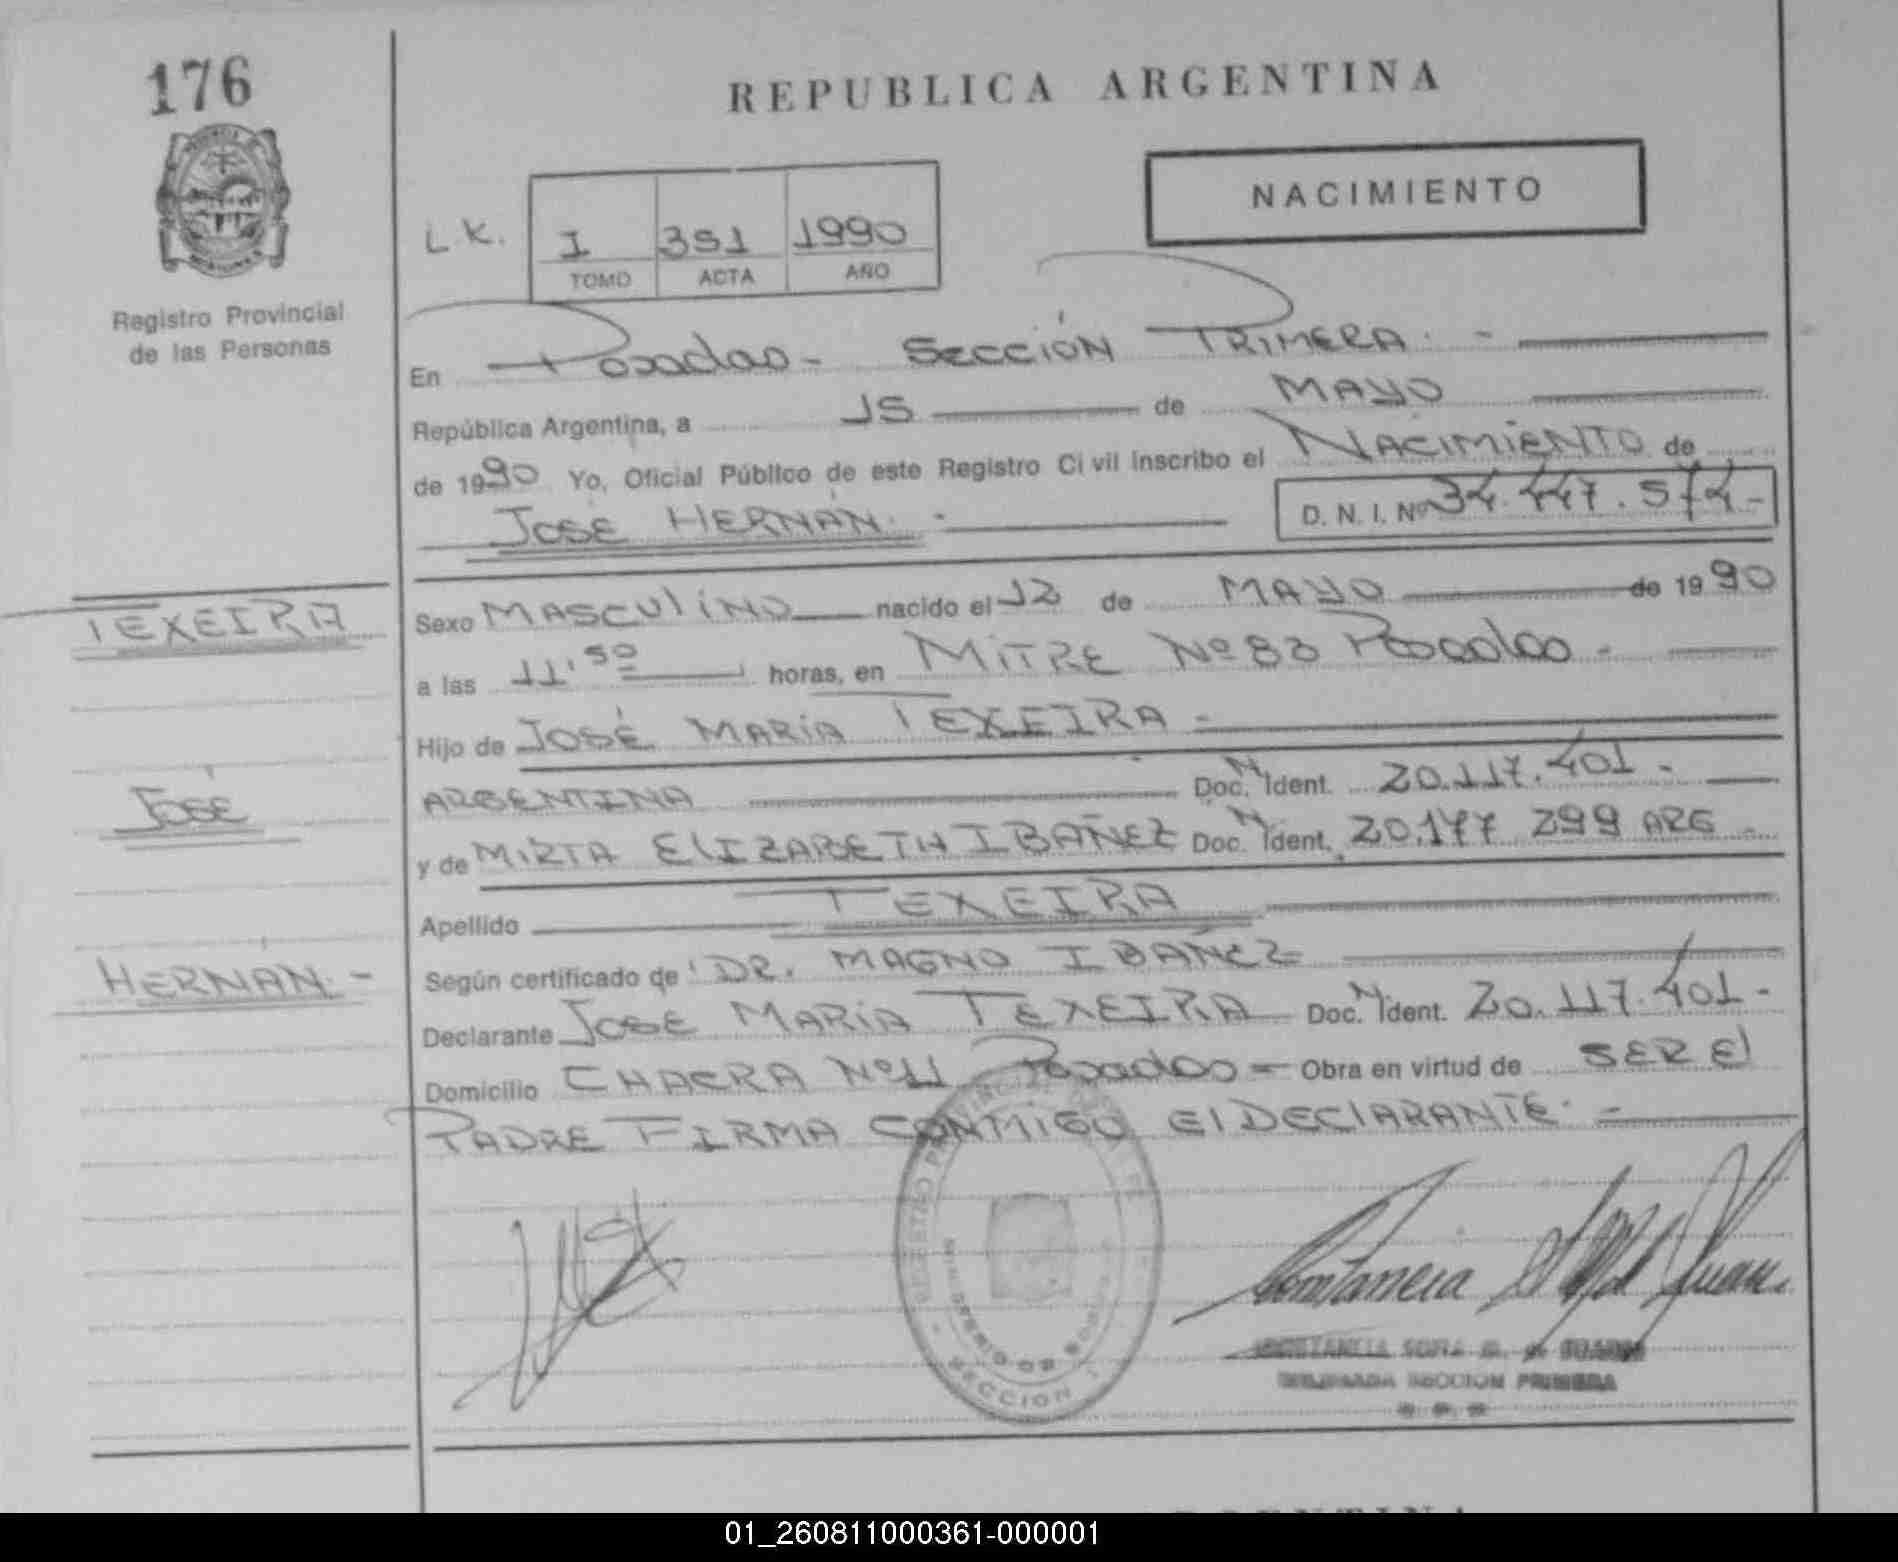 176
REPUBLICA ARGENTINA
NACIMIENTO
L.K.
I 351 1990
TOMO ACTA AÑO
Registro Provincial
de las Personas
En Posadas - SECCIÓN PRIMERA. -
República Argentina, a 15 de MAYO
de 1990 Yo, Oficial Público de este Registro Civil inscribo el NACIMIENTO de
JOSÉ HERNÁN. - D. N. I. Nº 34.447.574 -
TEXEIRA
Sexo MASCULINO nacido el 12 de MAYO de 1990
a las 11'50 horas, en MITRE Nº 83 Posadas -
Hijo de JOSÉ MARÍA TEXEIRA -
JOSÉ
ARGENTINA Doc. N. Ident. 20.117.401 -
y de MIRTA ELIZABETH IBAÑEZ Doc. N. Ident. 20.177 299 ARG -
Apellido TEXEIRA
HERNÁN. -
Según certificado de DR. MAGNO IBAÑEZ
Declarante JOSE MARÍA TEXEIRA Doc. N. Ident. 20.117.401 -
Domicilio CHACRA Nº 11 Posadas - Obra en virtud de SER El
PADRE FIRMA CONMIGO El DEClARANTE. -
REGISTRO PROVINCIAL DE
MINISTERIO DE
SECCION 1
SECCION PRIMERA
01_260811000361-000001